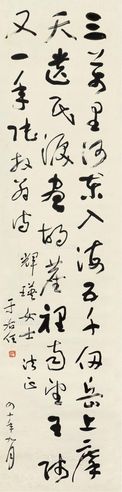 三萬里河東入海五千仞岳上摩
天遺民淚盡胡塵裡南望王師
又一年陸放翁詩
輝瑛女士法正
于右任
四十年九月